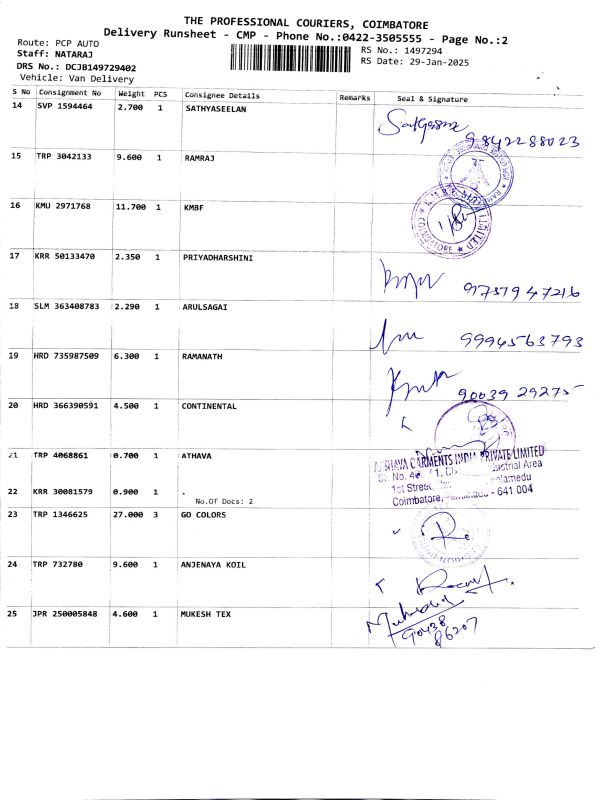 THE PROFESSIONAL COURIERS, COIMBATORE
Delivery Runsheet - CMP - Phone No.:0422-3505555 - Page No.:2
Route: PCP AUTO
Staff: NATARAJ
DRS No.: DCJB149729402
Vehicle: Van Delivery
RS No.: 1497294
RS Date: 29-Jan-2025
S No Consignment No Weight PCS Consignee Details Remarks Seal & Signature
14 SVP 1594464 2.700 1 SATHYASEELAN
9842288023
15 TRP 3042133 9.600 1 RAMRAJ
16 KMU 2971768 11.700 1 KMBF
LIMITED
COIMBATORE
17 KRR 50133470 2.350 1 PRIYADHARSHINI
9757947216
18 SLM 363408783 2.290 1 ARULSAGAI
9994563793
19 HRD 735987509 6.300 1 RAMANATH
90039 29275
20 HRD 366390591 4.500 1 CONTINENTAL
21 TRP 4068861 0.700 1 ATHAVA
GARMENTS INDIA PRIVATE LIMITED
Industrial Area
1st Street,
Coimbatore, - 641 004
22 KRR 30081579 0.900 1 .
No.Of Docs: 2
23 TRP 1346625 27.000 3 GO COLORS
24 TRP 732780 9.600 1 ANJENAYA KOIL
25 JPR 250005848 4.600 1 MUKESH TEX
90438
86207